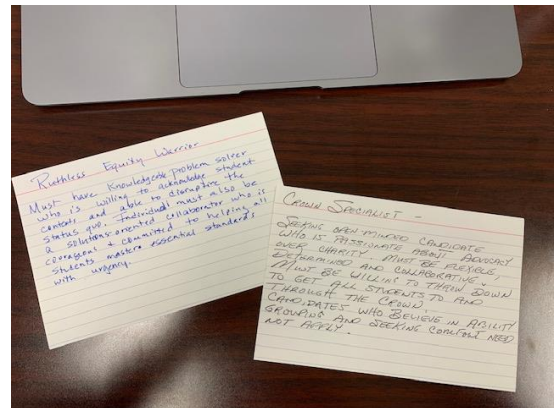 Ruthless Equity Warrior
Must have knowledgeable problem solver
who is willing to acknowledge student
context and able to disruptive the
status quo. Individual must also be
a solutions-oriented collaborator who is
courageous & committed to helping all
students master essential standards
with urgency.
CROWN SPECIALIST -
SEEKING OPEN MINDED CANDIDATE
WHO IS PASSIONATE ABOUT ADVOCACY
OVER CHARITY. MUST BE FLEXIBLE,
DETERMINED AND COLLABORATIVE.
MUST BE WILLING TO THROW DOWN
TO GET ALL STUDENTS TO AND
THROUGH THE CROWN.
CANDIDATES WHO BELIEVE IN ABILITY
GROUPING AND SEEKING COMFORT NEED
NOT APPLY.